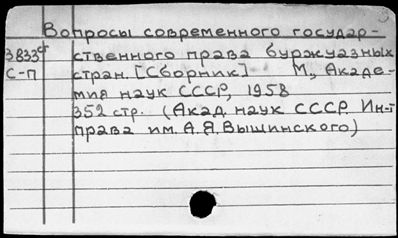 Вопросы современного государ-
3833ст ственного права буржуазных
С-п стран. [Сборник] М., Акаде-
мия наук СССР, 1958
352 стр. (Акад. наук СССР. Ин-т
права им. А.Я.Вышинского)